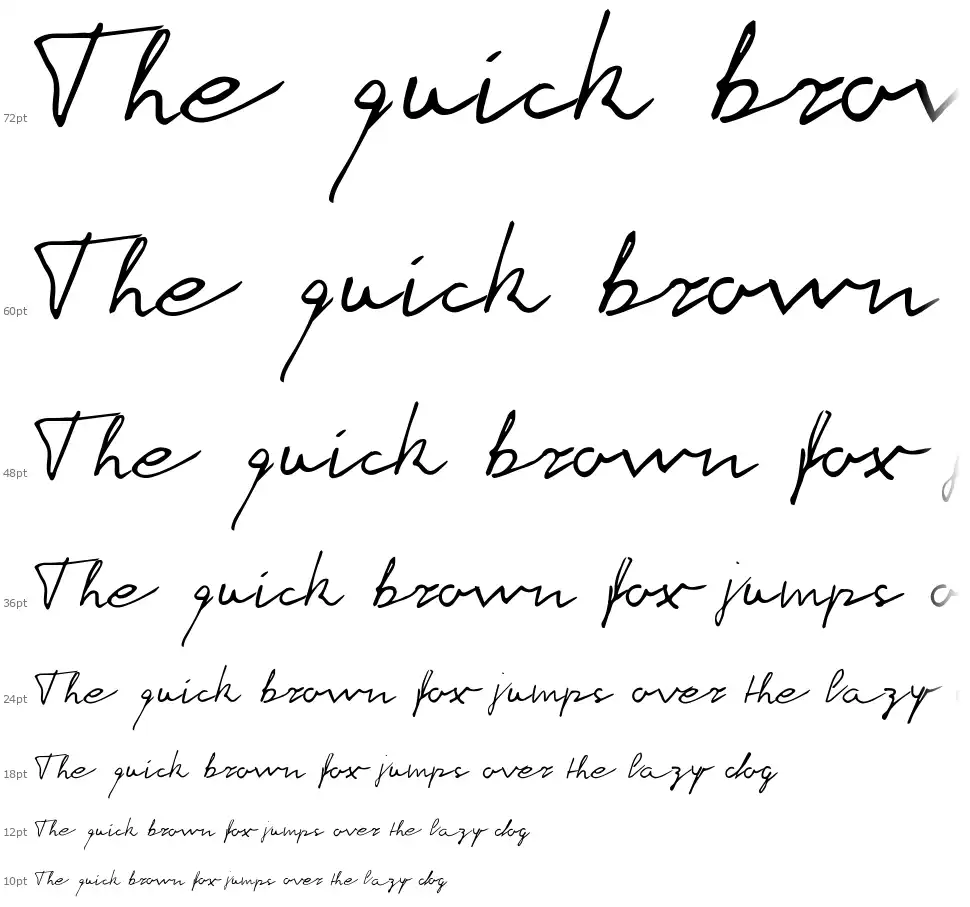 72pt The quick brow
60pt The quick brown
48pt The quick brown fox
36pt The quick brown fox jumps o
24pt The quick brown fox jumps over the lazy
18pt The quick brown fox jumps over the lazy dog
12pt The quick brown fox jumps over the lazy dog
10pt The quick brown fox jumps over the lazy dog